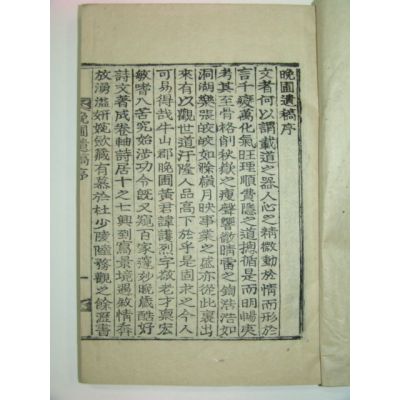 晩圃遺稿序
文者何以謂載道之器人心之精微動於情而形於
言千變萬化氣旺理順費隱之道摠循是而明暢爽
考甚至骨格削秋嶽之瘦聲響徹晴雷之鍧浩浩如
洞湖樂張皎皎如嶺月映事業之盛亦從此裏出
來有以觀世道汙隆人品高下於乎是固求之今人
可易得哉牛山郡晩圃黃君諱護烈字敬老才稟宏
敏嗜八苦究始涉功令旣又窺百家妙晩歲酷好
詩文著成卷軸詩居十之七興到寫景境遇敍情奔
放湧溢姸婉斂藏有慕於杜少陵陸務觀之餘瀝書
晩圃遺稿序 一